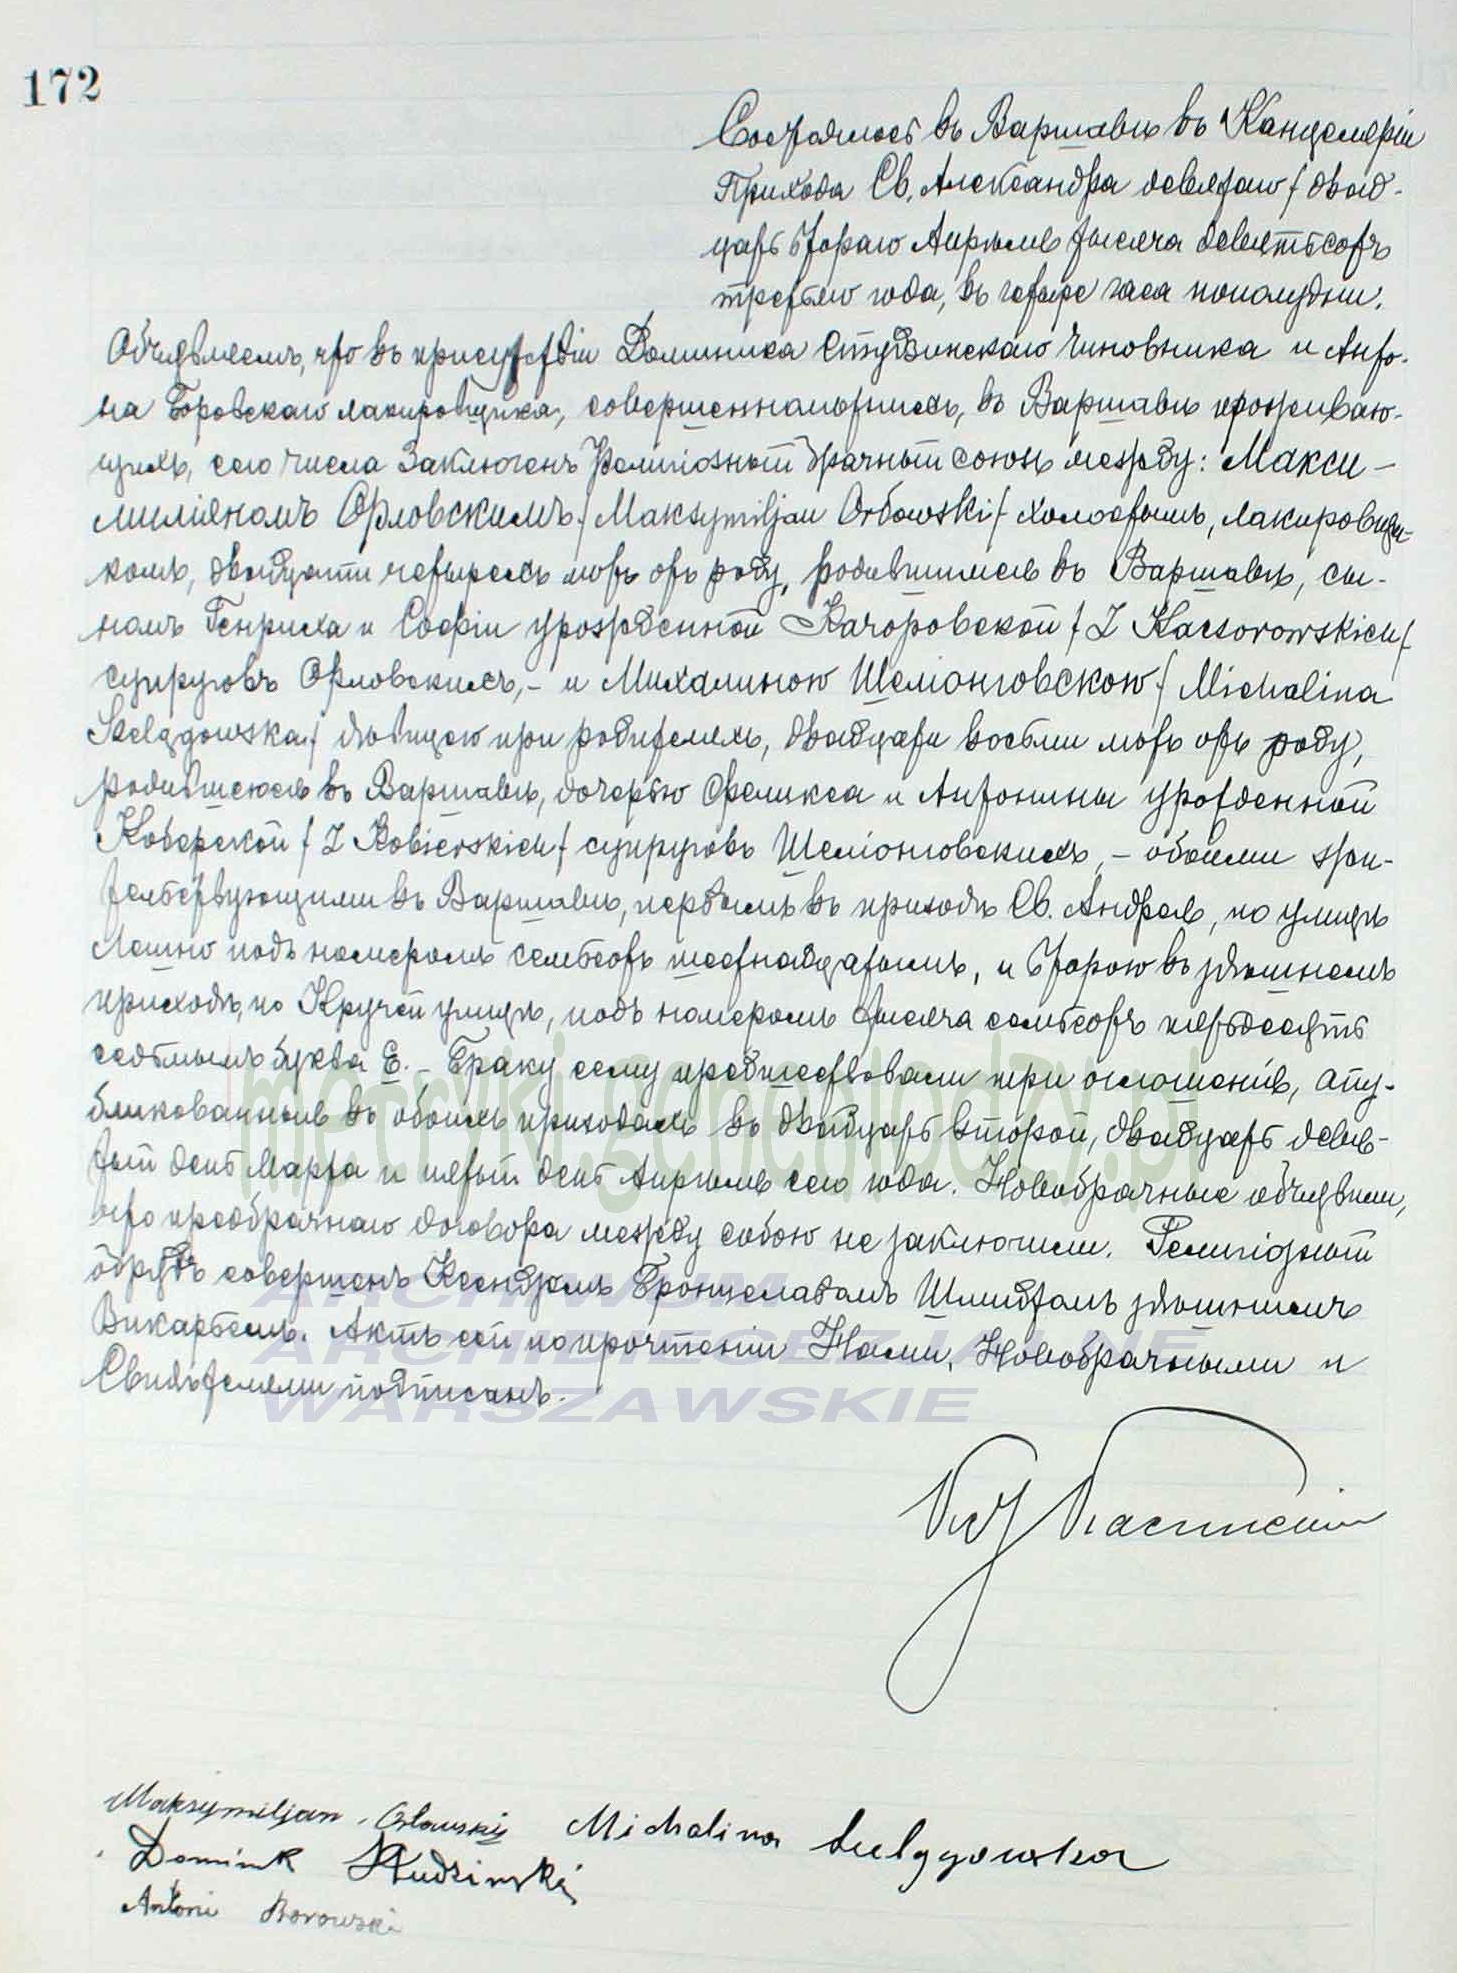 172
Состоялось въ Варшавѣ въ Канцеляріи
Прихода Св. Александра девятаго / двад-
цать втораго Апрѣля тысяча девятьсотъ
третьяго года, въ четыре часа пополудни.
Объявляемъ, что въ присутствіи Доминика Студзинскаго чиновника и Анто-
на Боровскаго лакировщика, совершеннолѣтнихъ, въ Варшавѣ проживаю-
щихъ, сего числа заключенъ религіозный брачный союзъ между: Макси-
миліяномъ Орловскимъ / Maksymiljan Orłowski / холостымъ, лакировщи-
комъ, двадцати четырехъ лѣтъ отъ роду, родившимся въ Варшавѣ, сы-
номъ Генриха и Софіи урожденной Качоровской / Z Kaczorowskich /
супруговъ Орловскихъ, – и Михалиною Шеліонговскою / Michalina
Szelągowska / дѣвицею при родителяхъ, двадцати восьми лѣтъ отъ роду,
родившеюся въ Варшавѣ, дочерью Феликса и Антонины урожденной
Коберской / Z Kobierskich / супруговъ Шеліонговскихъ, – обоими жи-
тельствующими въ Варшавѣ, первымъ въ приходѣ Св. Андрея, по улицѣ
Лешно подъ номеромъ семьсотъ шестнадцатымъ, и второю въ здѣшнемъ
приходѣ, по Кручей улицѣ, подъ номеромъ тысяча семьсотъ пятьдесятъ
седьмымъ буква Е. – Браку сему предшествовали три оглашенія, опу-
бликованныя въ обоихъ приходахъ въ двадцать второй, двадцать девя-
тый день Марта и пятый день Апрѣля сего года. Новобрачные объявили,
что предбрачнаго договора между собою не заключили. Религіозный
обрядъ совершенъ Ксендзомъ Брониславомъ Шмидтомъ здѣшнимъ
Викарьемъ. Актъ сей по прочтеніи Нами, Новобрачными и
Свидѣтелями подписанъ.
Maksymiljan Orłowski Michalina Szelągowska
Dominik Studzinski
Antoni Borowski
metryki.genealodzy.pl
ARCHIWUM
ARCHIDIECEZJALNE
WARSZAWSKIE